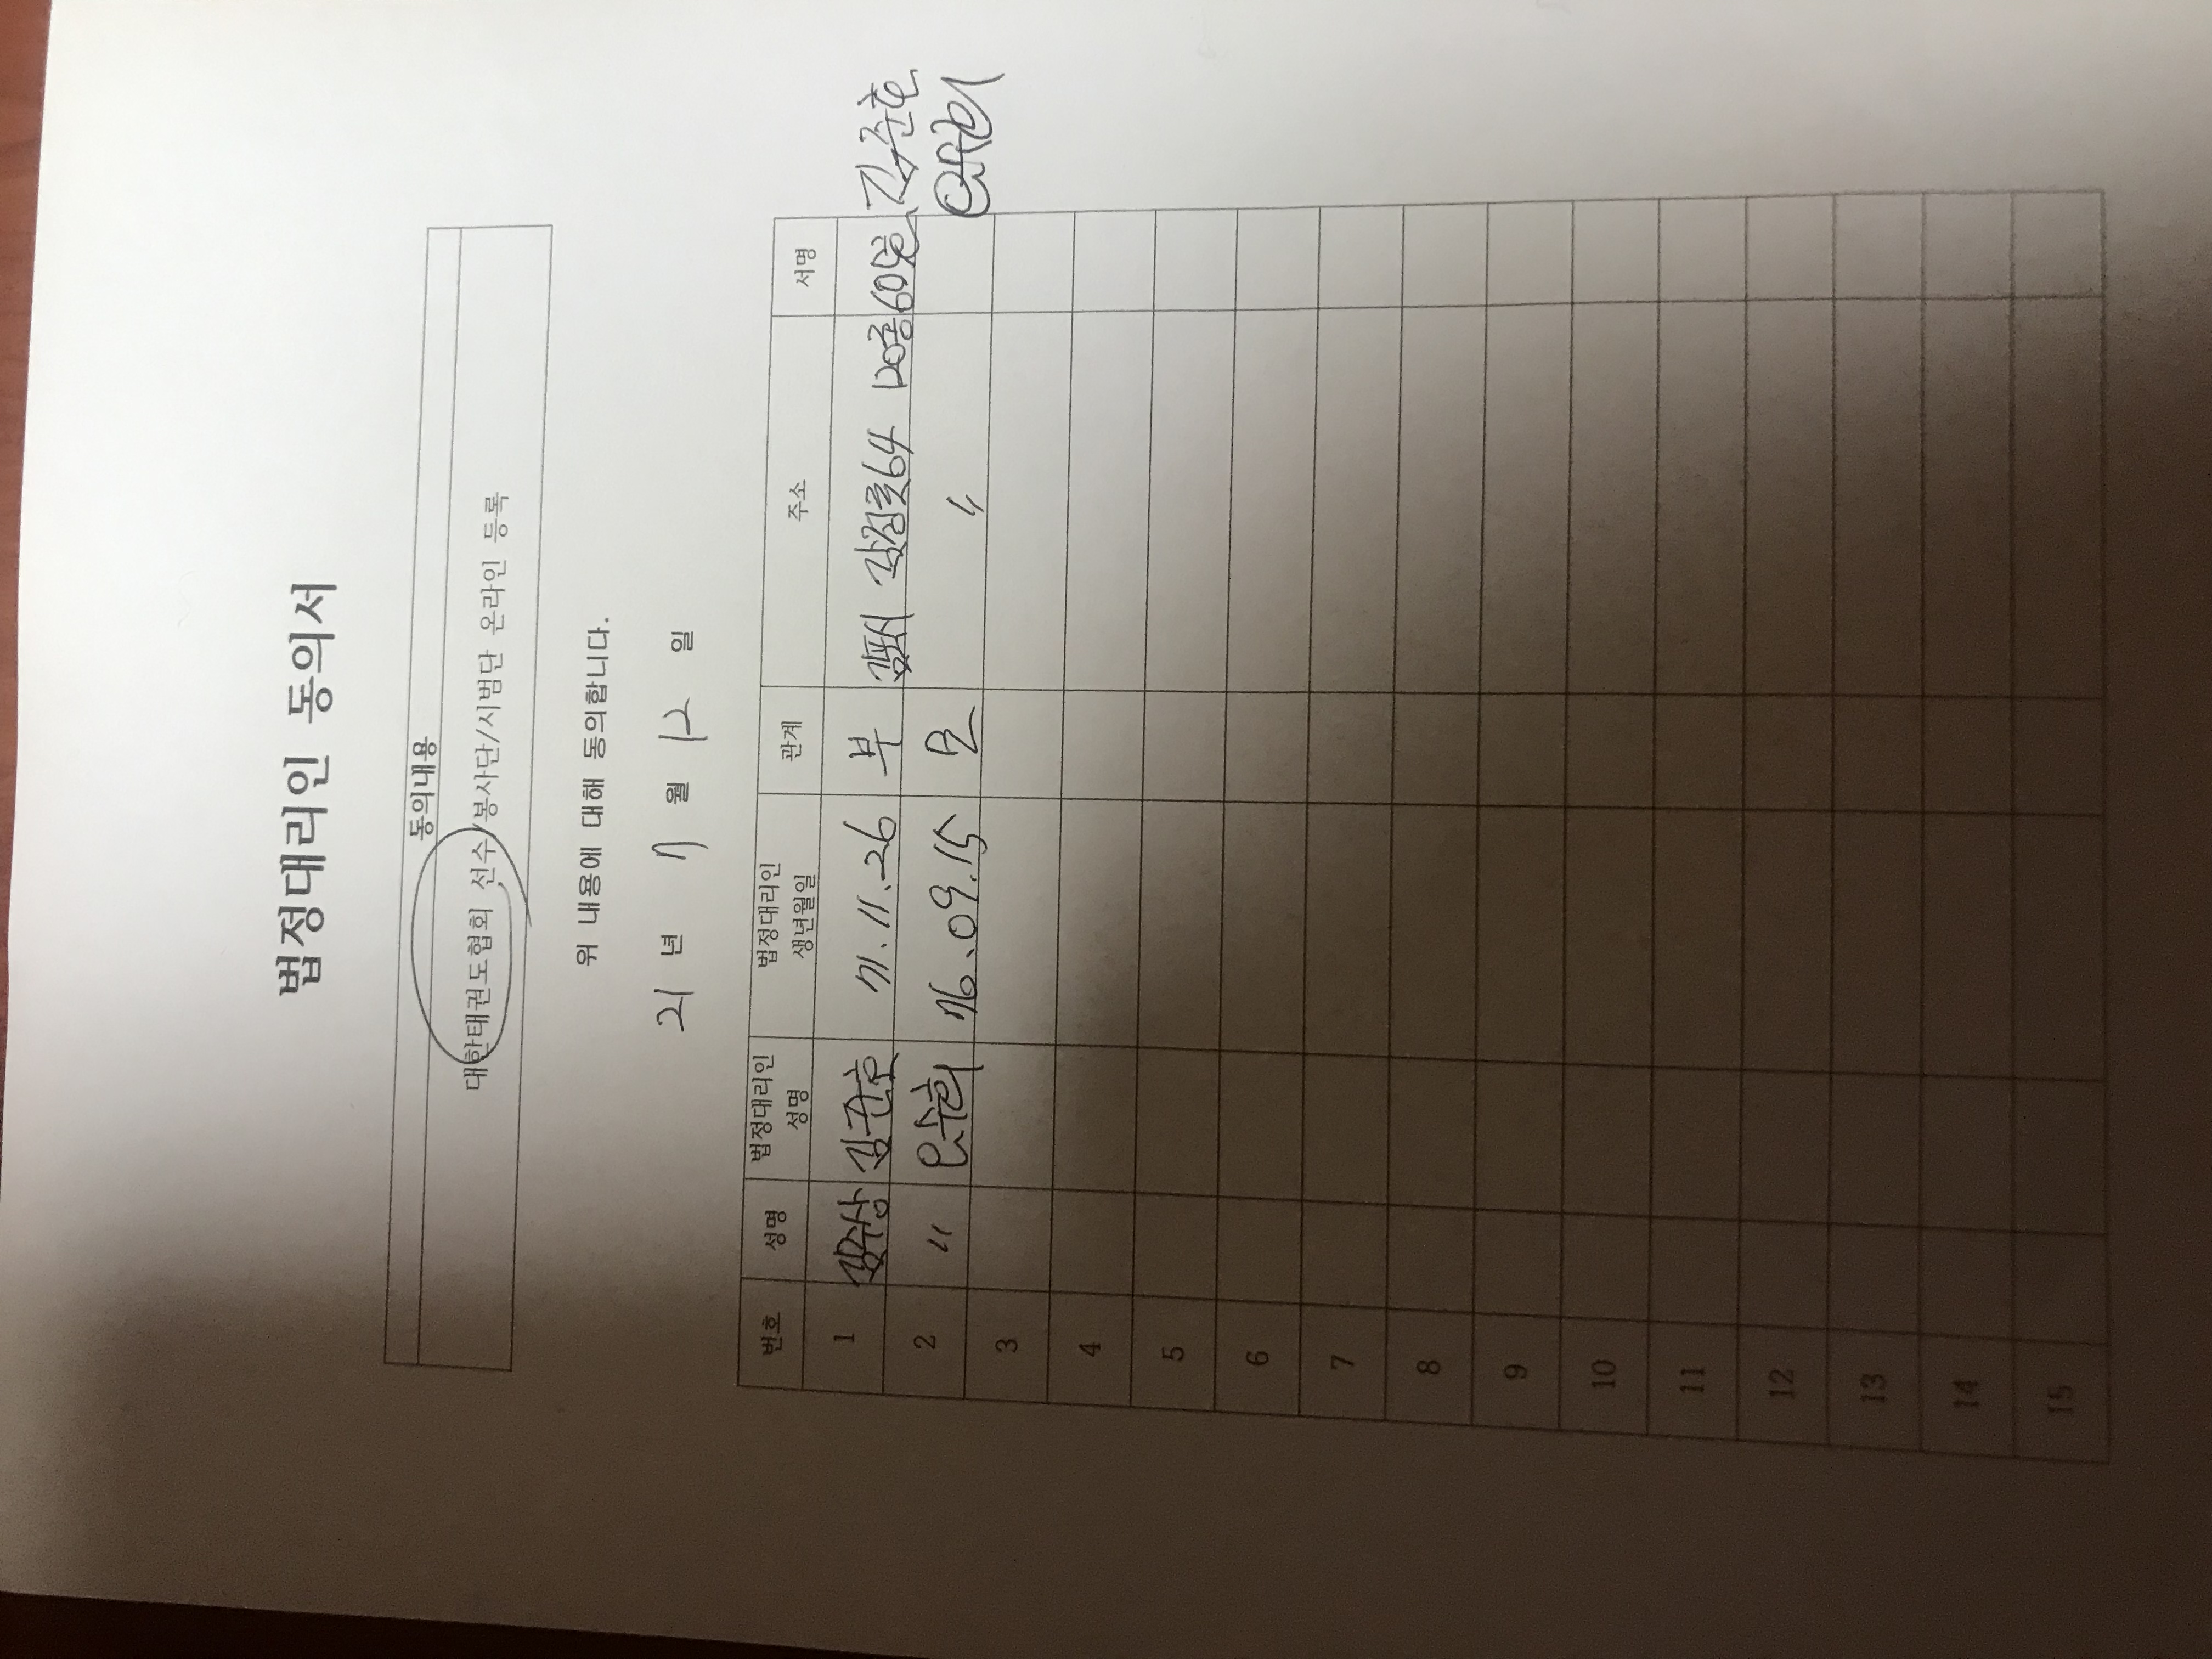 법정대리인 동의서
동의내용
대한태권도협회 선수/봉사단/시범단 온라인 등록
위 내용에 대해 동의합니다.
21 년 7 월 12 일
번호 성명 법정대리인 성명 법정대리인 생년월일 관계 주소 서명
1 김준호 71.11.26 부 김포시 감정로64 김준호
2 〃 안수희 76.09.15 모 〃
3
4
5
6
7
8
9
10
11
12
13
14
15